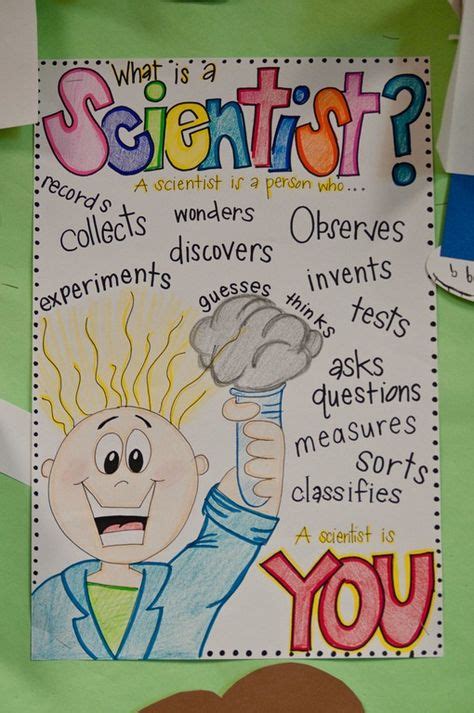 What is a
Scientist?
A scientist is a person who...
records
collects
wonders
Observes
discovers
experiments
guesses
invents
thinks
tests
asks
questions
measures
sorts
classifies
A scientist is
YOU